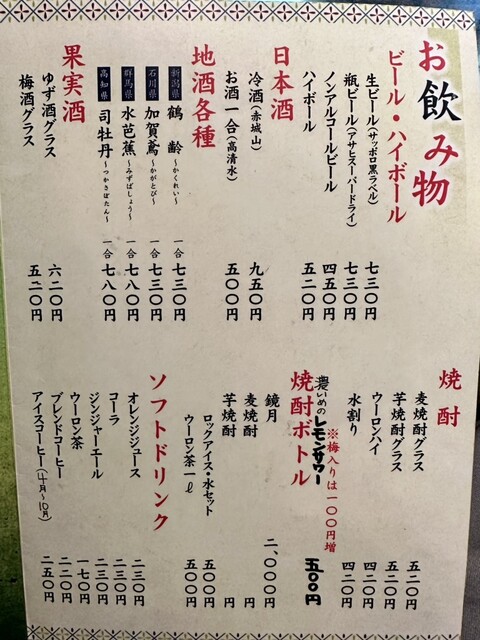 お飲み物
ビール・ハイボール
生ビール(サッポロ黒ラベル) 七三〇円
瓶ビール(アサヒスーパードライ) 七三〇円
ノンアルコールビール 四五〇円
ハイボール 五二〇円
日本酒
冷酒(赤城山) 九五〇円
お酒一合(高清水) 五〇〇円
地酒各種
新潟県 鶴齢~かくれい~ 一合 七三〇円
石川県 加賀鳶~かがとび~ 一合 七三〇円
群馬県 水芭蕉~みずばしょう~ 一合 七八〇円
高知県 司牡丹~つかさぼたん~ 一合 七八〇円
果実酒
ゆず酒グラス 六二〇円
梅酒グラス 五二〇円
焼酎
麦焼酎グラス 五二〇円
芋焼酎グラス 五二〇円
ウーロンハイ 四二〇円
水割り 四二〇円
※梅入りは一〇〇円増
濃いめのレモンサワー 五〇〇円
焼酎ボトル
鏡月 二、〇〇〇円
麦焼酎 円
芋焼酎 円
ロックアイス・水セット 五〇〇円
ウーロン茶一ℓ 五〇〇円
ソフトドリンク
オレンジジュース 二三〇円
コーラ 二三〇円
ジンジャーエール 二三〇円
ウーロン茶 一七〇円
ブレンドコーヒー 二二〇円
アイスコーヒー(4月~10月) 二五〇円